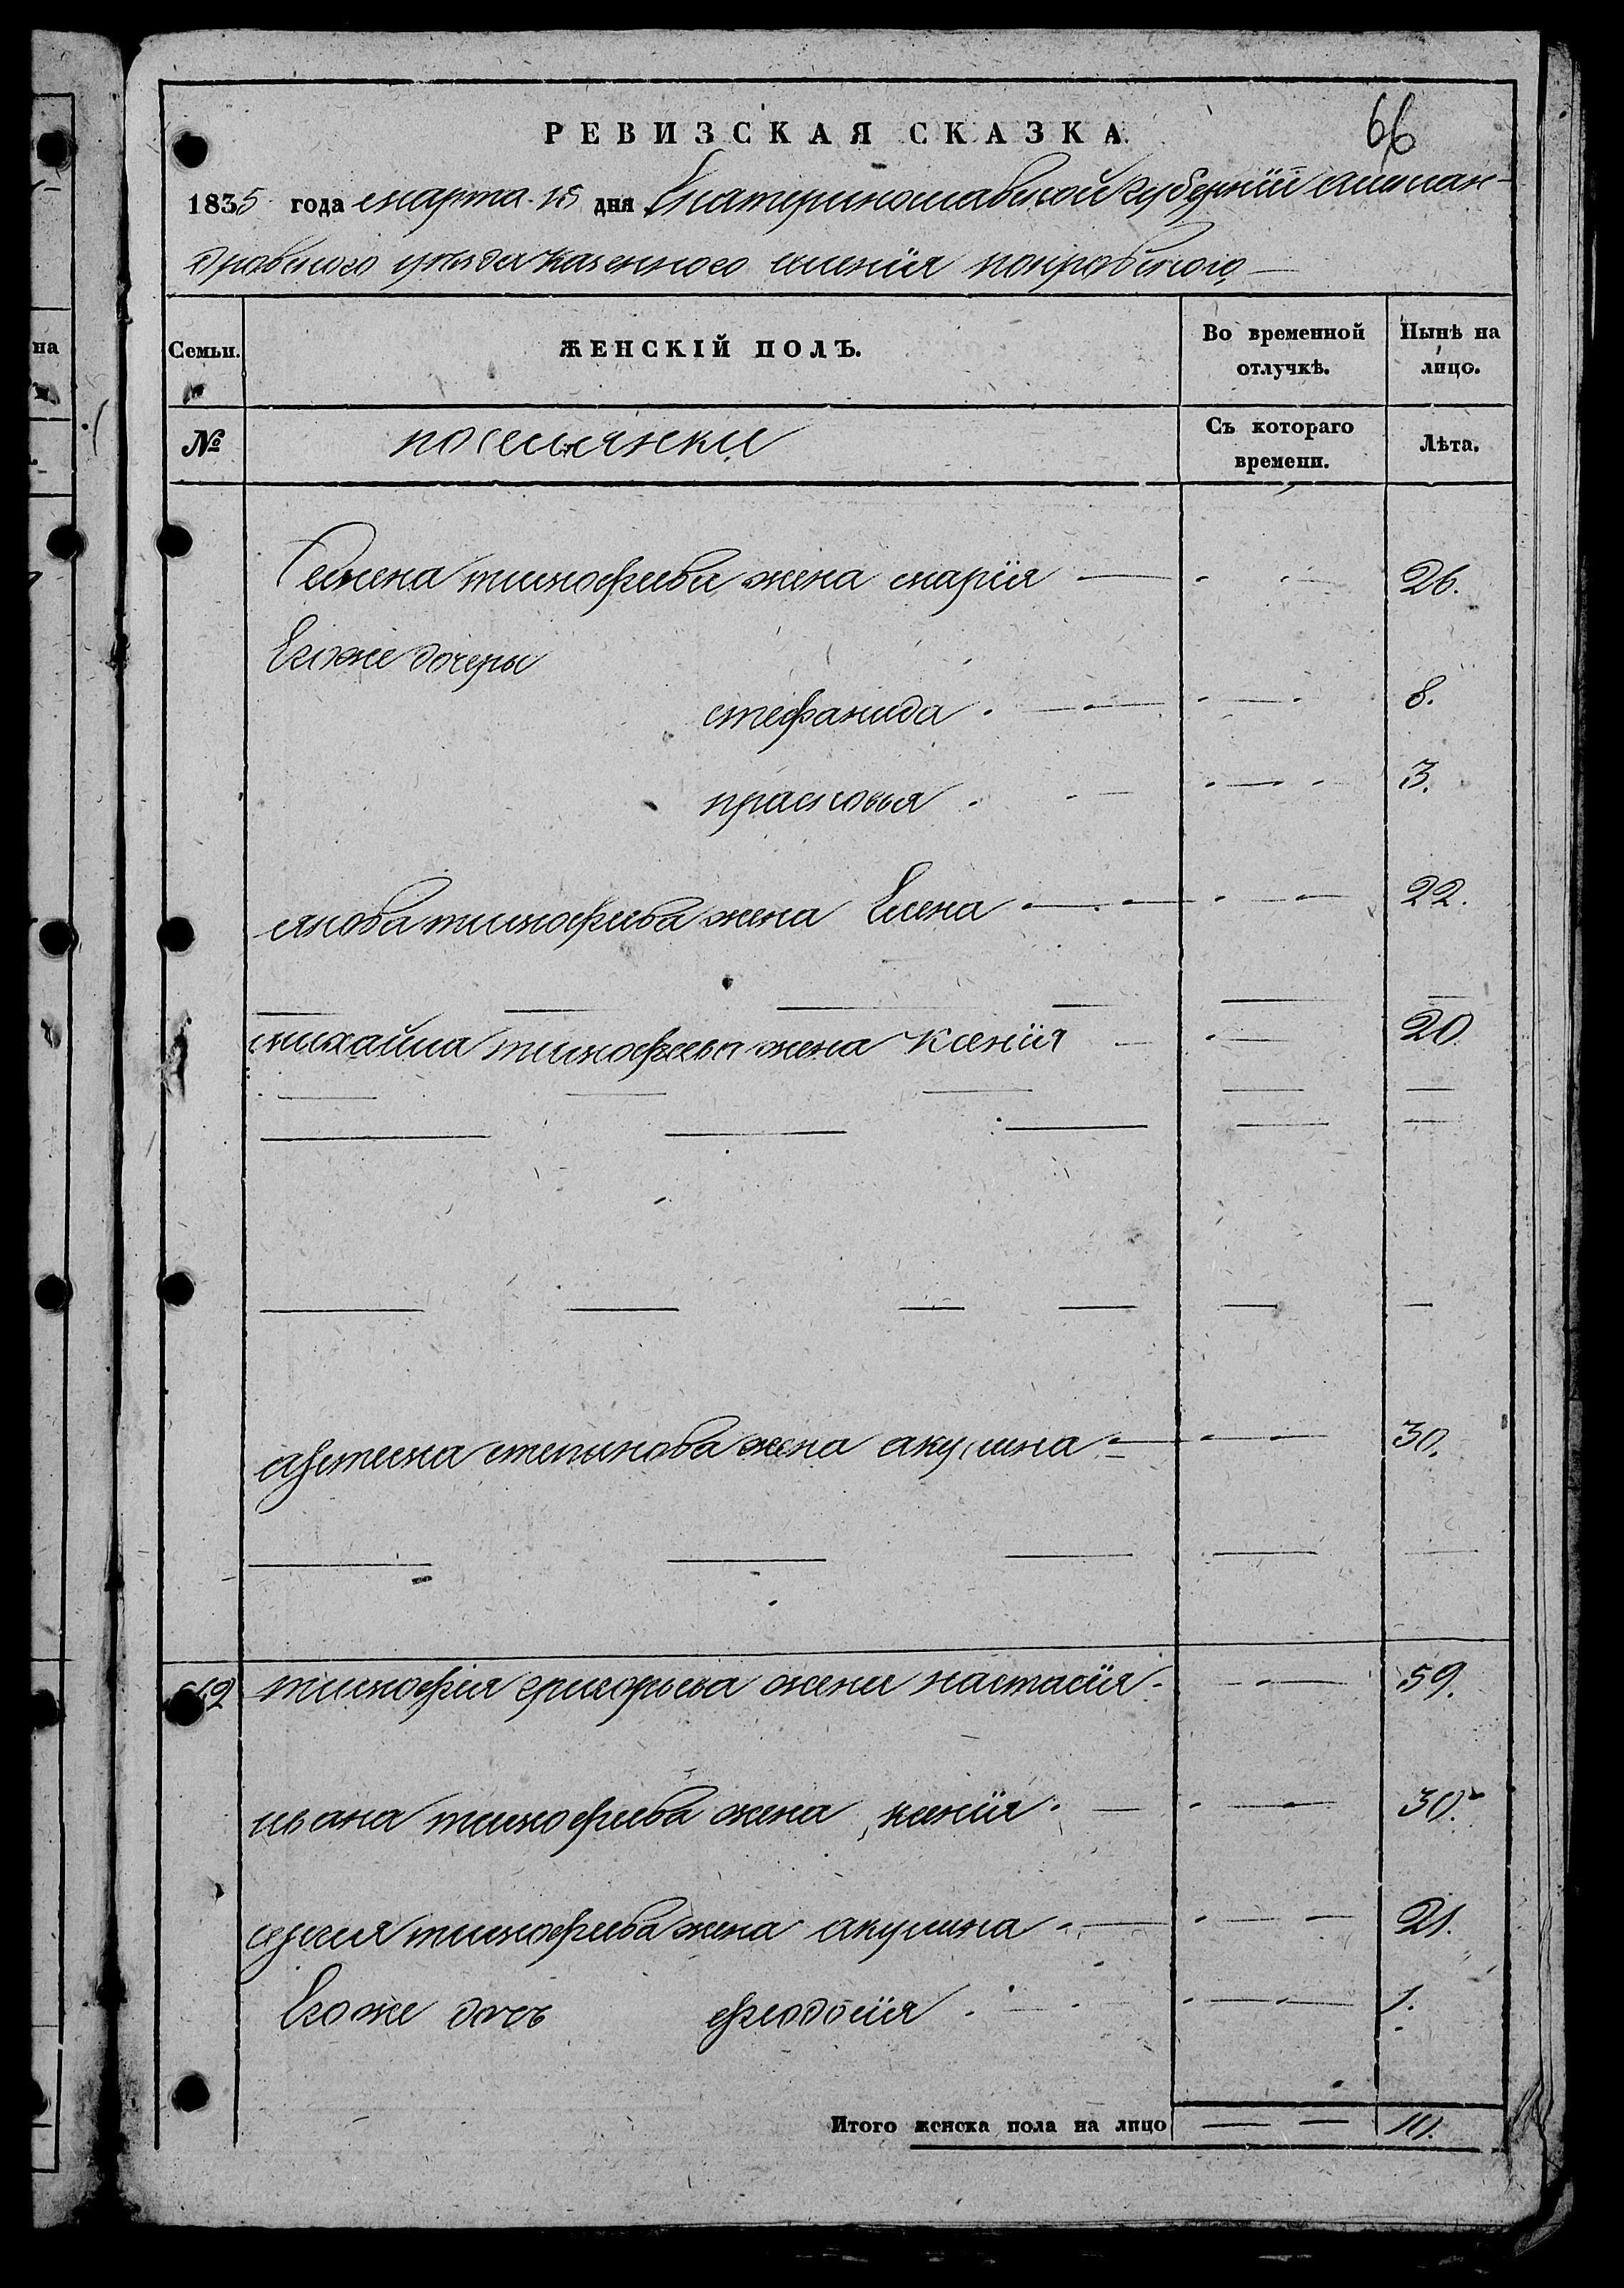 66
РЕВИЗСКАЯ СКАЗКА.
1835 года марта 15 дня Екатеринославской губернїи александ-
дровского уезда казенного имения покровского
Семьи.
ЖЕНСКІЙ ПОЛЪ.
Во временной отлучкѣ.
Нынѣ на лицо.
№
поселянки
Съ котораго времени.
Лѣта.
Семена тимофеева жена марїя 26.
Егоже дочеры
стефанида 8.
прасковья 3.
якова тимофеева жена Елена 22.
михайла тимофеева жена Ксенїя 20
артема степанова жена акулина 30.
тимофея григорьева жена настасїя 59.
ивана тимофеева жена ксенїя 30.
сергея тимофеева жена акулина 21.
Егоже дочь феодосїя 1.
Итого женска пола на лицо 10.
на